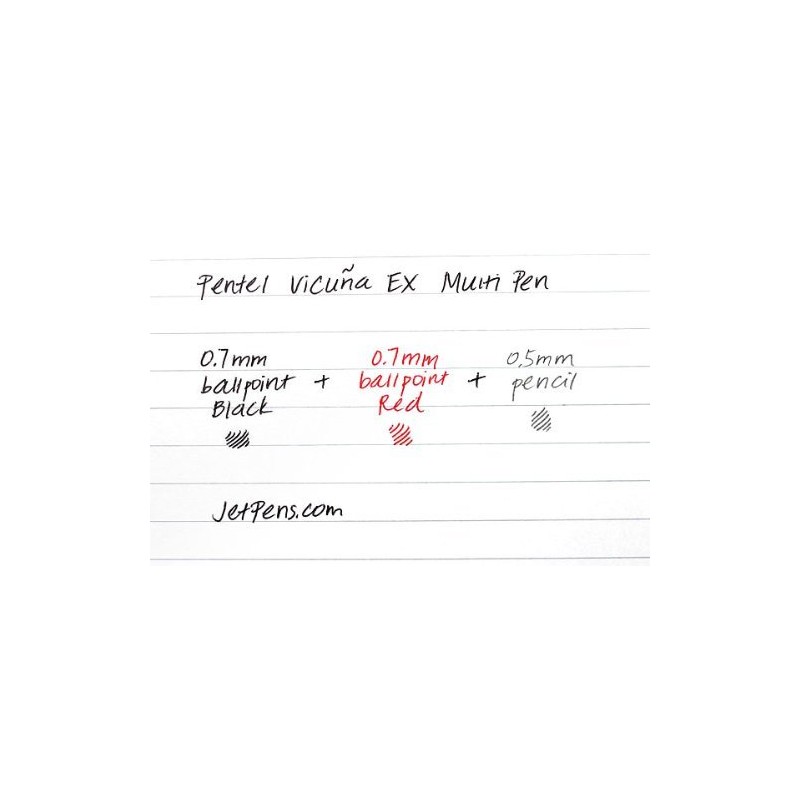 Pentel Vicuña EX Multi Pen
0.7mm ballpoint Black + 0.7mm ballpoint Red + 0.5mm pencil
JetPens.com